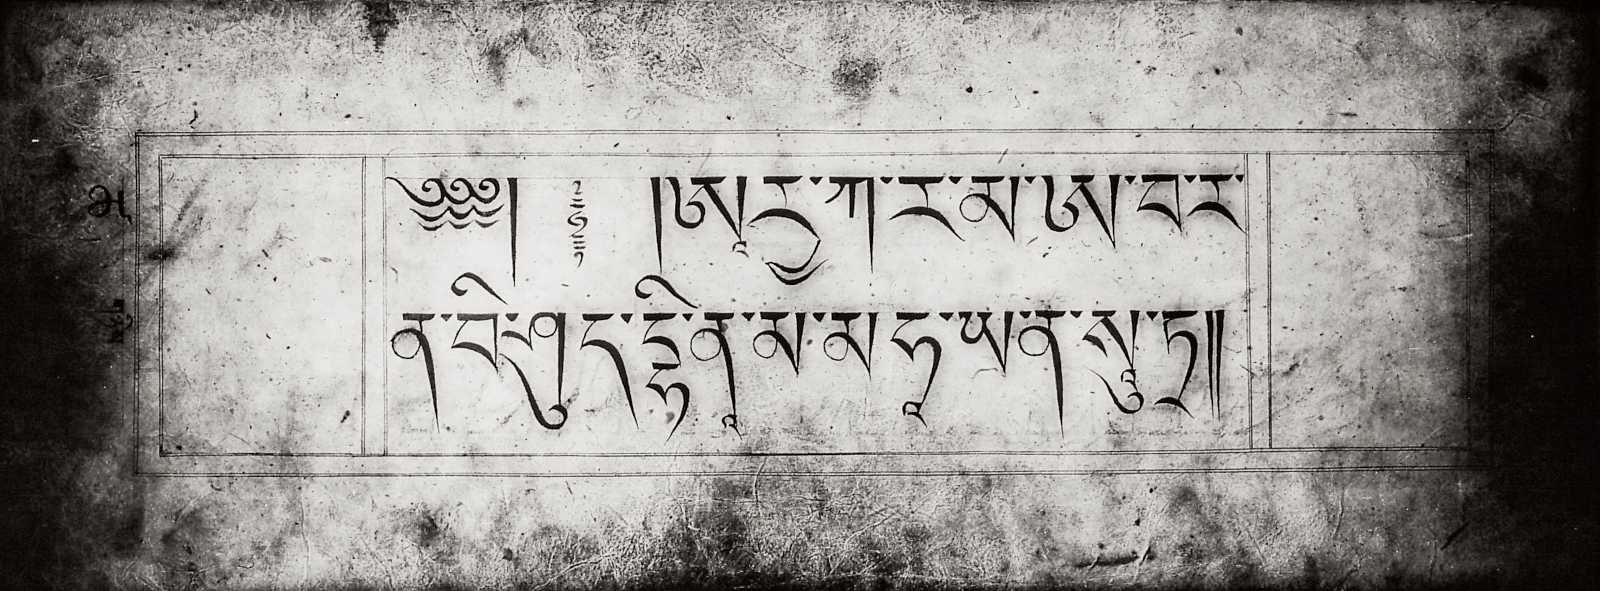 ༄༅༅། ༈ །ཨཱརྱ་ཀ་ར་མ་ཨ་བ་ར་
ན་བི་ཤུ་ད་དྷི་ནཱ་མ་མ་ཧཱ་ཡ་ན་སཱུ་ཏྲ༎